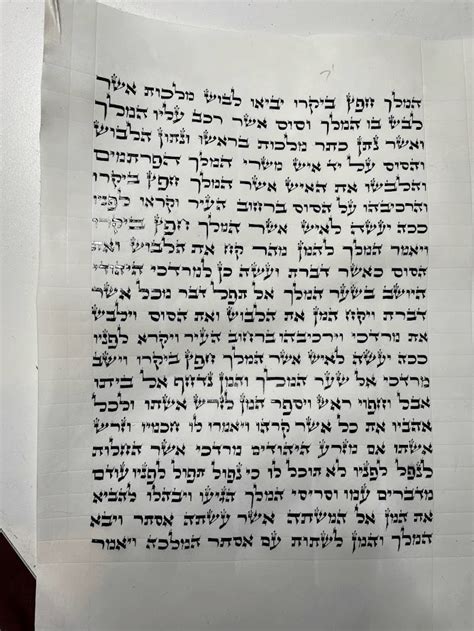 המלך חפץ ביקרו יביאו לבוש מלכות אשר
לבש בו המלך וסוס אשר רכב עליו המלך
ואשר נתן כתר מלכות בראשו ונתון הלבוש
והסוס על יד איש משרי המלך הפרתמים
והלבשו את האיש אשר המלך חפץ ביקרו
והרכיבהו על הסוס ברחוב העיר וקראו לפניו
ככה יעשה לאיש אשר המלך חפץ ביקרו
ויאמר המלך להמן מהר קח את הלבוש ואת
הסוס כאשר דברת ועשה כן למרדכי היהודי
היושב בשער המלך אל תפל דבר מכל אשר
דברת ויקח המן את הלבוש ואת הסוס וילבש
את מרדכי וירכיבהו ברחוב העיר ויקרא לפניו
ככה יעשה לאיש אשר המלך חפץ ביקרו וישב
מרדכי אל שער המלך והמן נדחף אל ביתו
אבל וחפוי ראש ויספר המן לזרש אשתו ולכל
אהביו את כל אשר קרהו ויאמרו לו חכמיו וזרש
אשתו אם מזרע היהודים מרדכי אשר החלות
לנפל לפניו לא תוכל לו כי נפול תפול לפניו עודם
מדברים עמו וסריסי המלך הגיעו ויבהלו להביא
את המן אל המשתה אשר עשתה אסתר ויבא
המלך והמן לשתות עם אסתר המלכה ויאמר